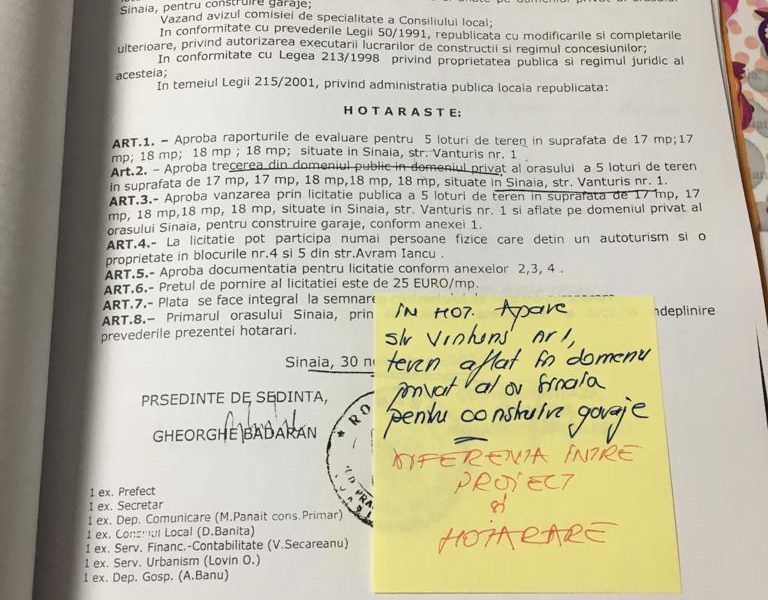 Sinaia, pentru construire garaje;
Vazand avizul comisiei de specialitate a Consiliului local;
In conformitate cu prevederile Legii 50/1991, republicata cu modificarile si completarile
ulterioare, privind autorizarea executarii lucrarilor de constructii si regimul concesiunilor;
In conformitate cu Legea 213/1998 privind proprietatea publica si regimul juridic al
acesteia;
In temeiul Legii 215/2001, privind administratia publica locala republicata:
HOTARASTE:
ART.1. – Aproba raporturile de evaluare pentru 5 loturi de teren in suprafata de 17 mp;17
mp; 18 mp; 18 mp ; 18 mp; situate in Sinaia, str. Vanturis nr. 1
Art.2. – Aproba trecerea din domeniul public in domeniul privat al orasului a 5 loturi de teren
in suprafata de 17 mp, 17 mp, 18 mp,18 mp, 18 mp, situate in Sinaia, str. Vanturis nr. 1.
ART.3.- Aproba vanzarea prin licitatie publica a 5 loturi de teren in suprafata de 17 mp, 17
mp, 18 mp,18 mp, 18 mp, situate in Sinaia, str. Vanturis nr. 1 si aflate pe domeniul privat al
orasului Sinaia, pentru construire garaje, conform anexei 1.
ART.4.- La licitatie pot participa numai persoane fizice care detin un autoturism si o
proprietate in blocurile nr.4 si 5 din str.Avram Iancu .
ART.5.- Aproba documentatia pentru licitatie conform anexelor 2,3, 4 .
ART.6.- Pretul de pornire al licitatiei este de 25 EURO/mp.
ART.7.- Plata se face integral la semnarea
ART.8.– Primarul orasului Sinaia, prin indeplinire
prevederile prezentei hotarari.
Sinaia, 30
PRSEDINTE DE SEDINTA,
GHEORGHE BADARAN
1 ex. Prefect
1 ex. Secretar
1 ex. Dep. Comunicare (M.Panait cons.Primar)
1 ex. Consiliul Local (D.Banita)
1 ex. Serv. Financ.-Contabilitate (V.Secareanu)
1 ex. Serv. Urbanism (Lovin O.)
1 ex. Dep. Gosp. (A.Banu)
IN HOT. Apare
str Vinturis nr 1,
teren aflat în domeniu
privat al or Sinaia
pentru construire garaje
DIFERENTA INTRE
PROIECT
si
HOTARARE